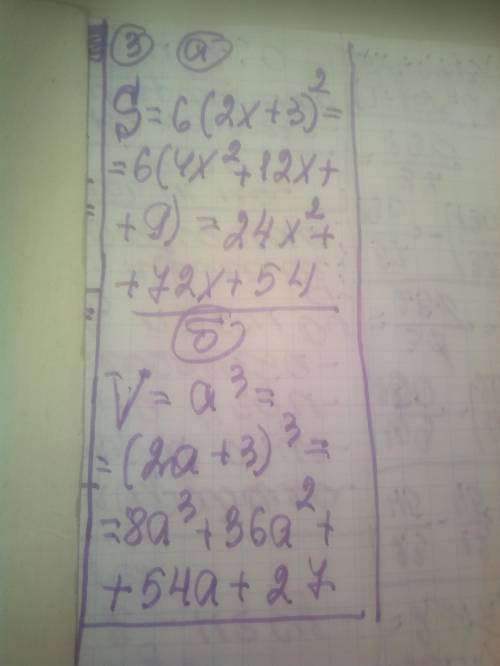 3 а
S = 6(2x+3)² =
= 6(4x² + 12x +
+ 9) = 24x² +
+ 72x + 54
б
V = a³ =
= (2a + 3)³ =
= 8a³ + 36a² +
+ 54a + 27